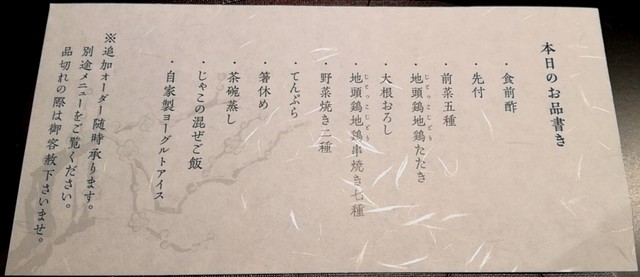 本日のお品書き
・食前酢
・先付
・前菜五種
・地頭鶏地鶏たたき
・大根おろし
・地頭鶏地鶏串焼き七種
・野菜焼き二種
・てんぷら
・箸休め
・茶碗蒸し
・じゃこの混ぜご飯
・自家製ヨーグルトアイス
※追加オーダー随時承ります。
別途メニューをご覧ください。
品切れの際は御容赦下さいませ。